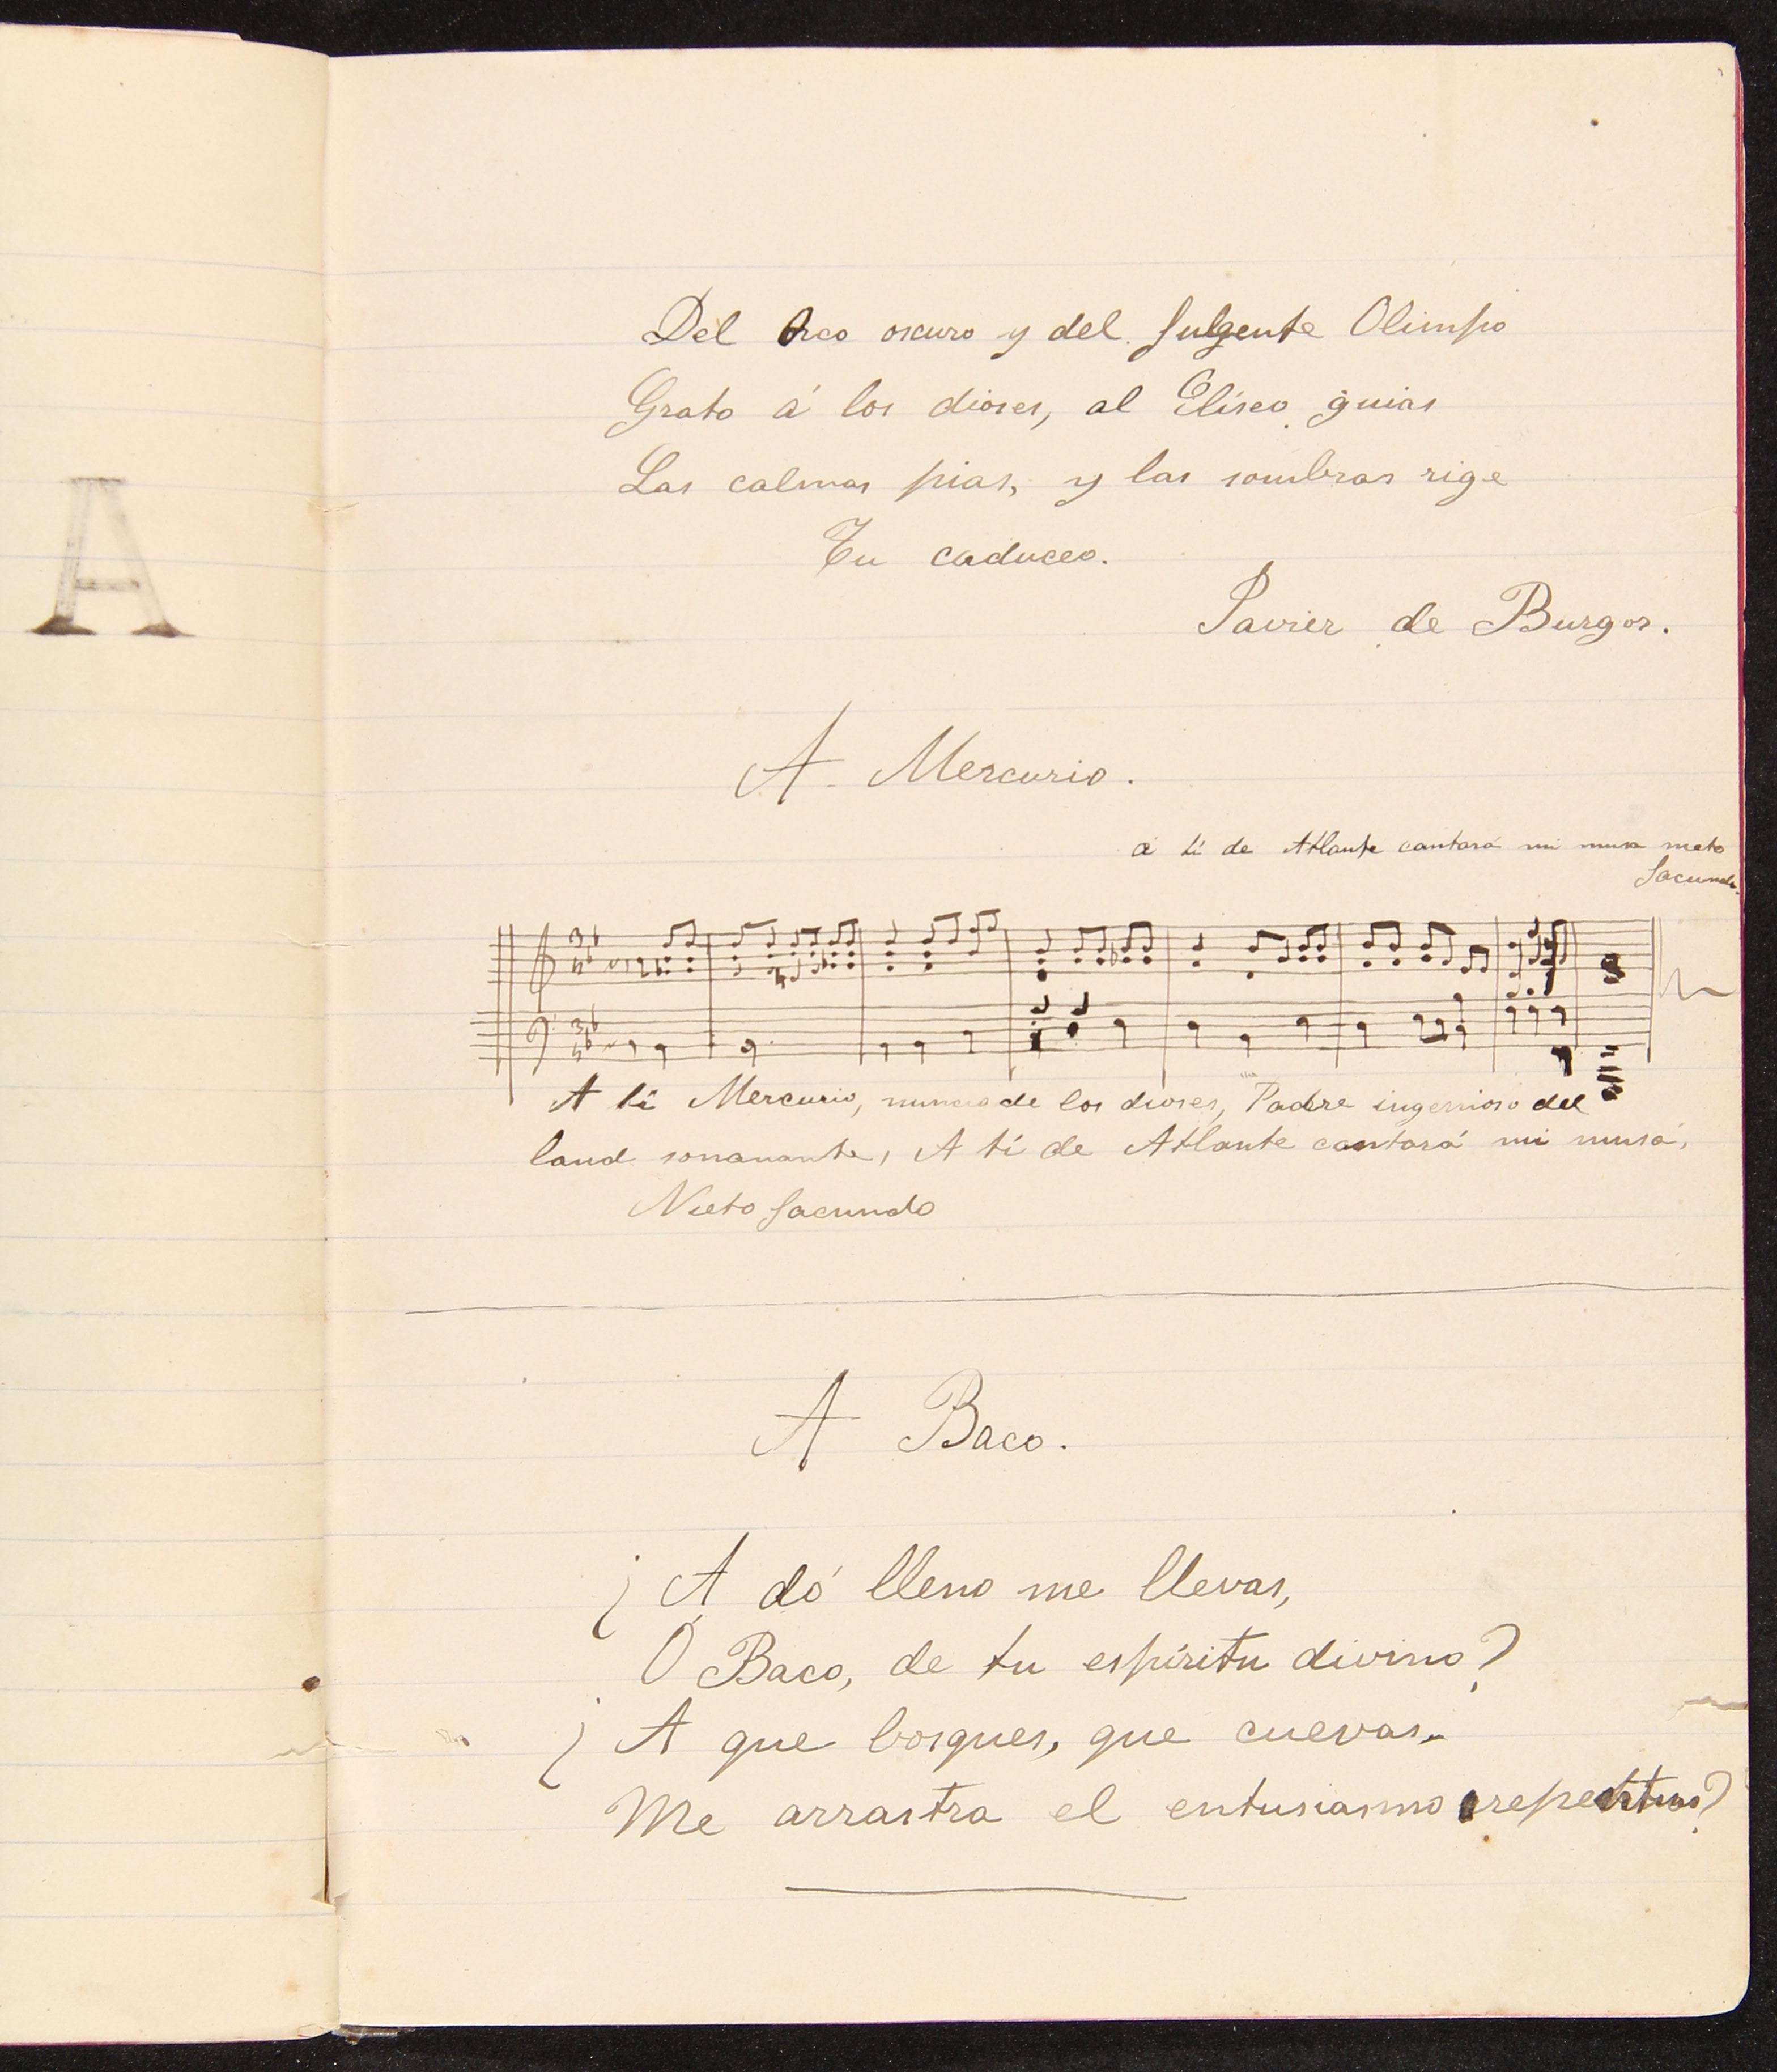 A
Del Orco oscuro y del fulgente Olimpo
Grato á los dioses, al Elíseo guias
Las calmas pias, y las sombras rige
Tu caduceo.
Javier de Burgos.
A Mercurio.
á tí de Atlante cantará mi musa nieto
facundo.
A tí Mercurio, nuncio de los dioses, Padre ingenioso del
laud sonanante, A tí de Atlante cantará mi musá,
Nieto facundo
A Baco.
¿A dó lleno me llevas,
O Baco, de tu espíritu divino?
¿A que bosques, que cuevas,
Me arrastra el entusiasmo